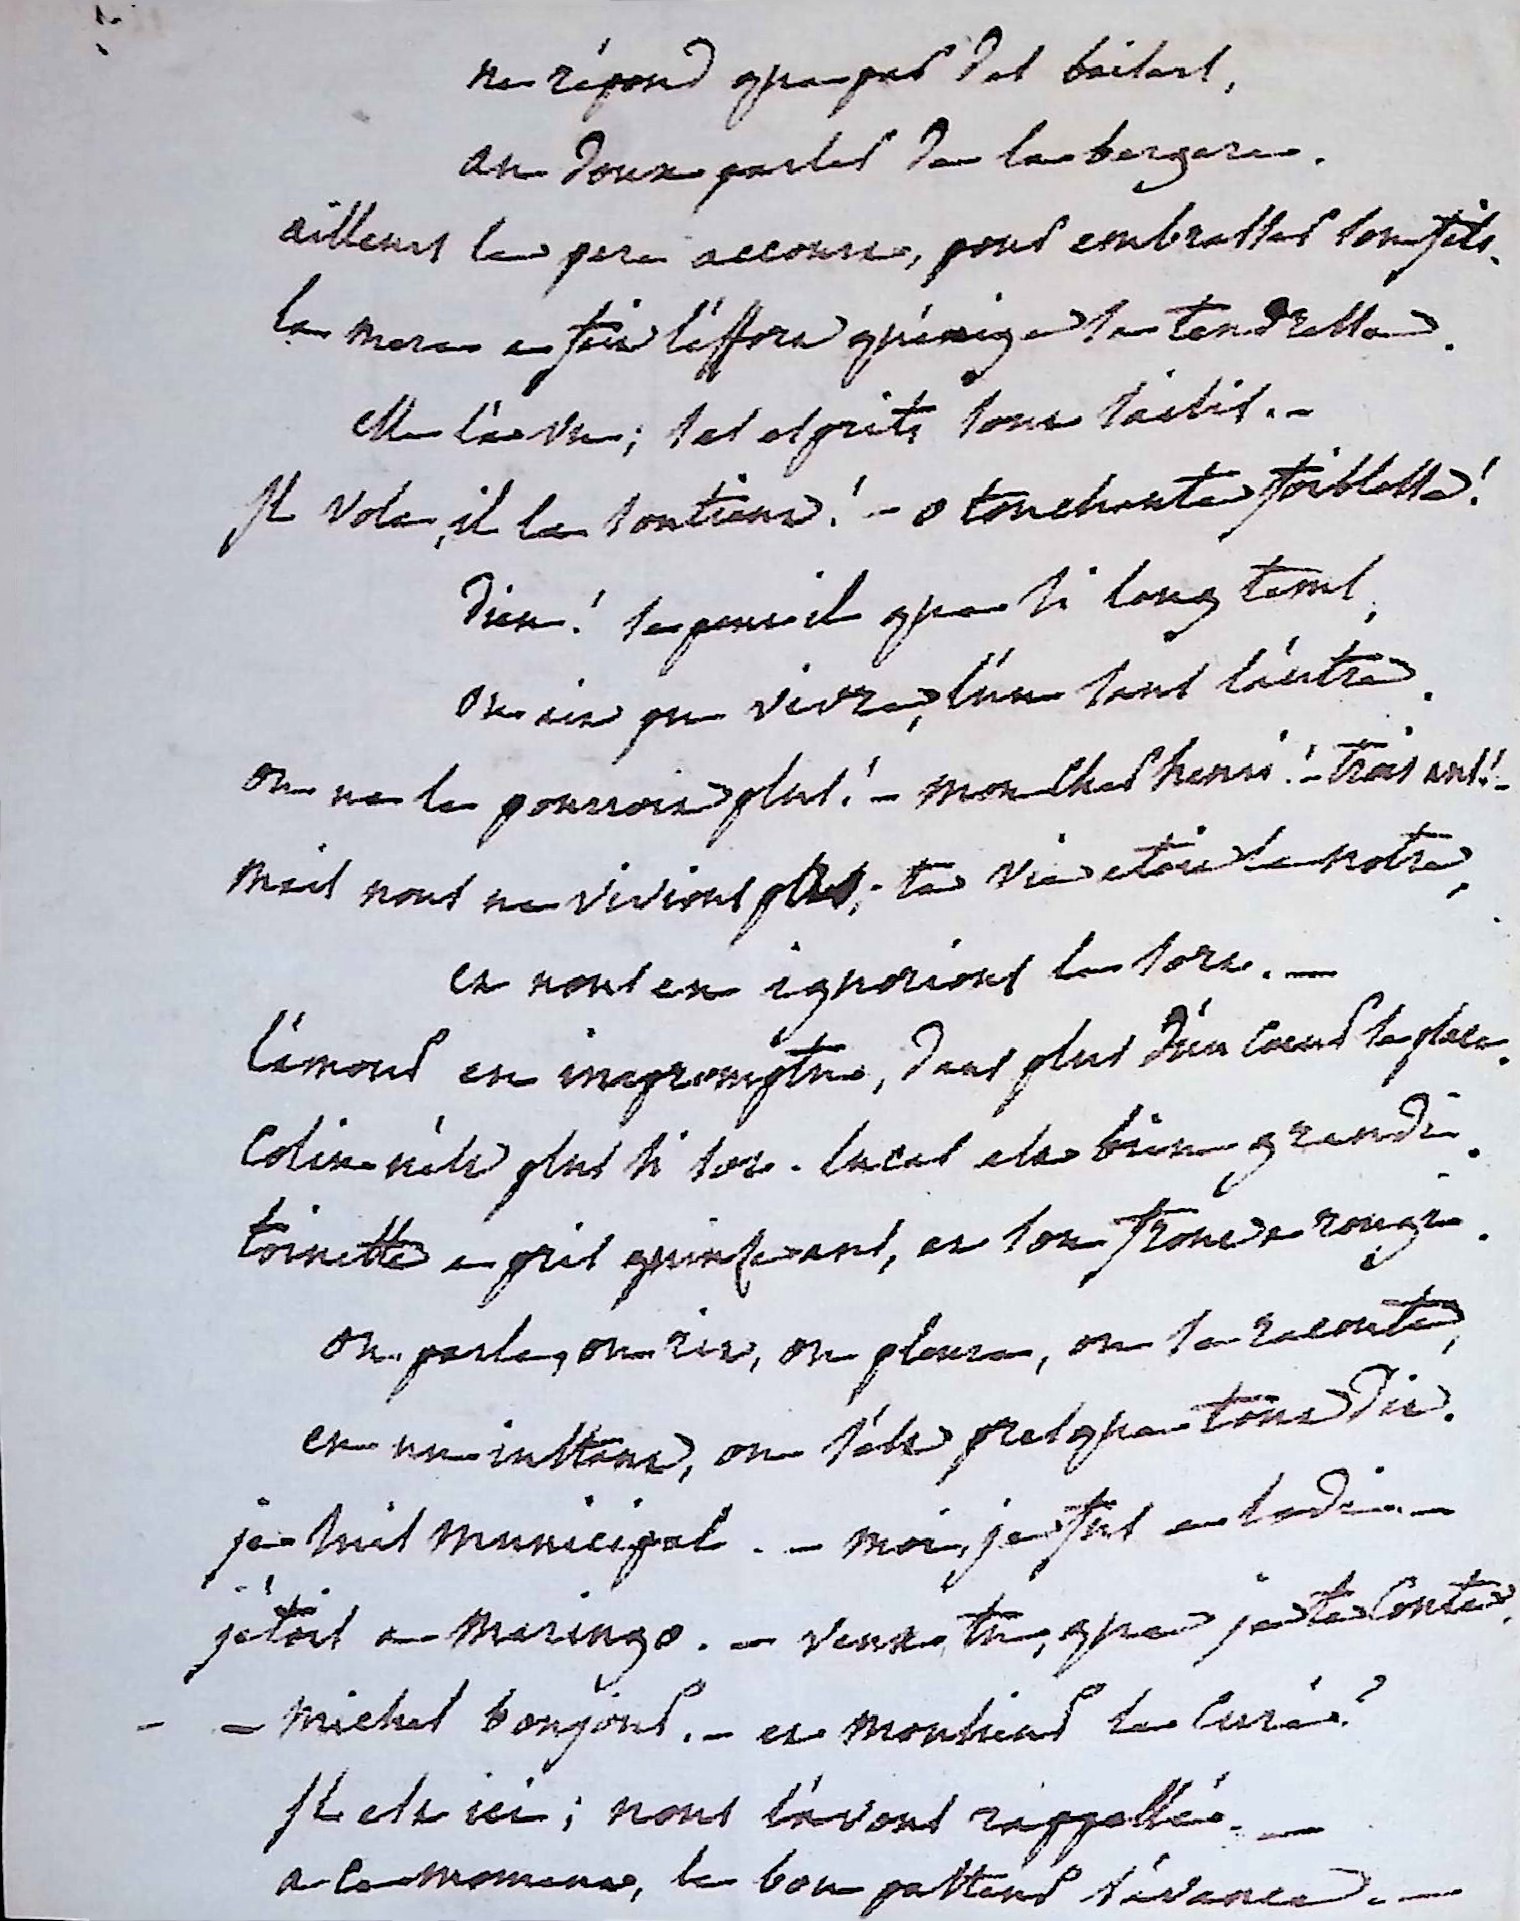 ne répond que par des baisers,
au doux parler de la bergere.
ailleurs le pere accourt, pour embrasser son fils.
la mere a fait l'éffort qu'éxige sa tendresse.
elle l'a vu; ses esprits sont saisis. -
Il vole, il la soutient! - o touchante foiblesse!
Dieu! se peut il que si long tems,
on ait pu vivre, l'un sans l'autre.
on ne le pourroit plus! - mon cher henri! - trois ans! -
mais nous ne vivions plus; - ta vie etoit la notre,
et nous en ignorions le sort. —
l'amour en impromptu, dans plus d'un cœur se place.
Colin n'est plus si sot. lucas est bien grandi.
toinette a pris quinze ans, et son front a rougi.
on parle, on rit, on pleure, on se raconte,
en un instant, on s'est presque tout dit.
je suis municipal. - moi, je fus a lodi. —
j'étois a maringo. - veux tu, que je te conte.
- - michel bonjour. - et monsieur le Curé?
Il est ici; nous l'avons rappellé. —
a ce moment, le bon pasteur s'avance. —